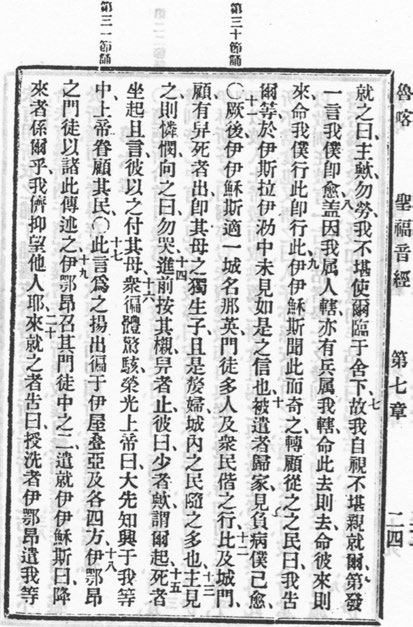 第三十節誦
第三一節誦
魯喀 聖福音經 第七章 二四
就之曰、主歟勿勞、我不堪使爾臨于舍下、七故我自視不堪親就爾、第發
一言我僕卽愈、八盖因我属人轄、亦有兵属我轄、命此去則去、命彼來則
來、命我僕行此卽行此、九伊伊穌斯聞此而奇之、轉顧從之之民曰、我告
爾等、於伊斯拉伊泐中未見如是之信也、十被遣者歸家、見負病僕已愈、
○十一厥後伊伊穌斯適一城名那英、門徒多人及衆民偕之行、十二比及城門、
顧有舁死者出、卽其母之獨生子、且是嫠婦、城內之民隨之多也、十三主見
之則憐憫、向之曰、勿哭、十四進前按其櫬、舁者止、彼曰、少者歟、謂爾起、十五死者
坐起且言、彼以之付其母、十六衆徧體驚駭、榮光上帝曰、大先知興于我等
中、上帝眷顧其民、○十七此言爲之揚出徧于伊屋叠亞及各四方、十八伊鄂昂
之門徒以諸此傳述之、十九伊鄂昂召其門徒中之二、遣就伊伊穌斯曰、降
來者係爾乎、我儕抑望他人耶、二十來就之者告曰、授洗者伊鄂昂遣我等